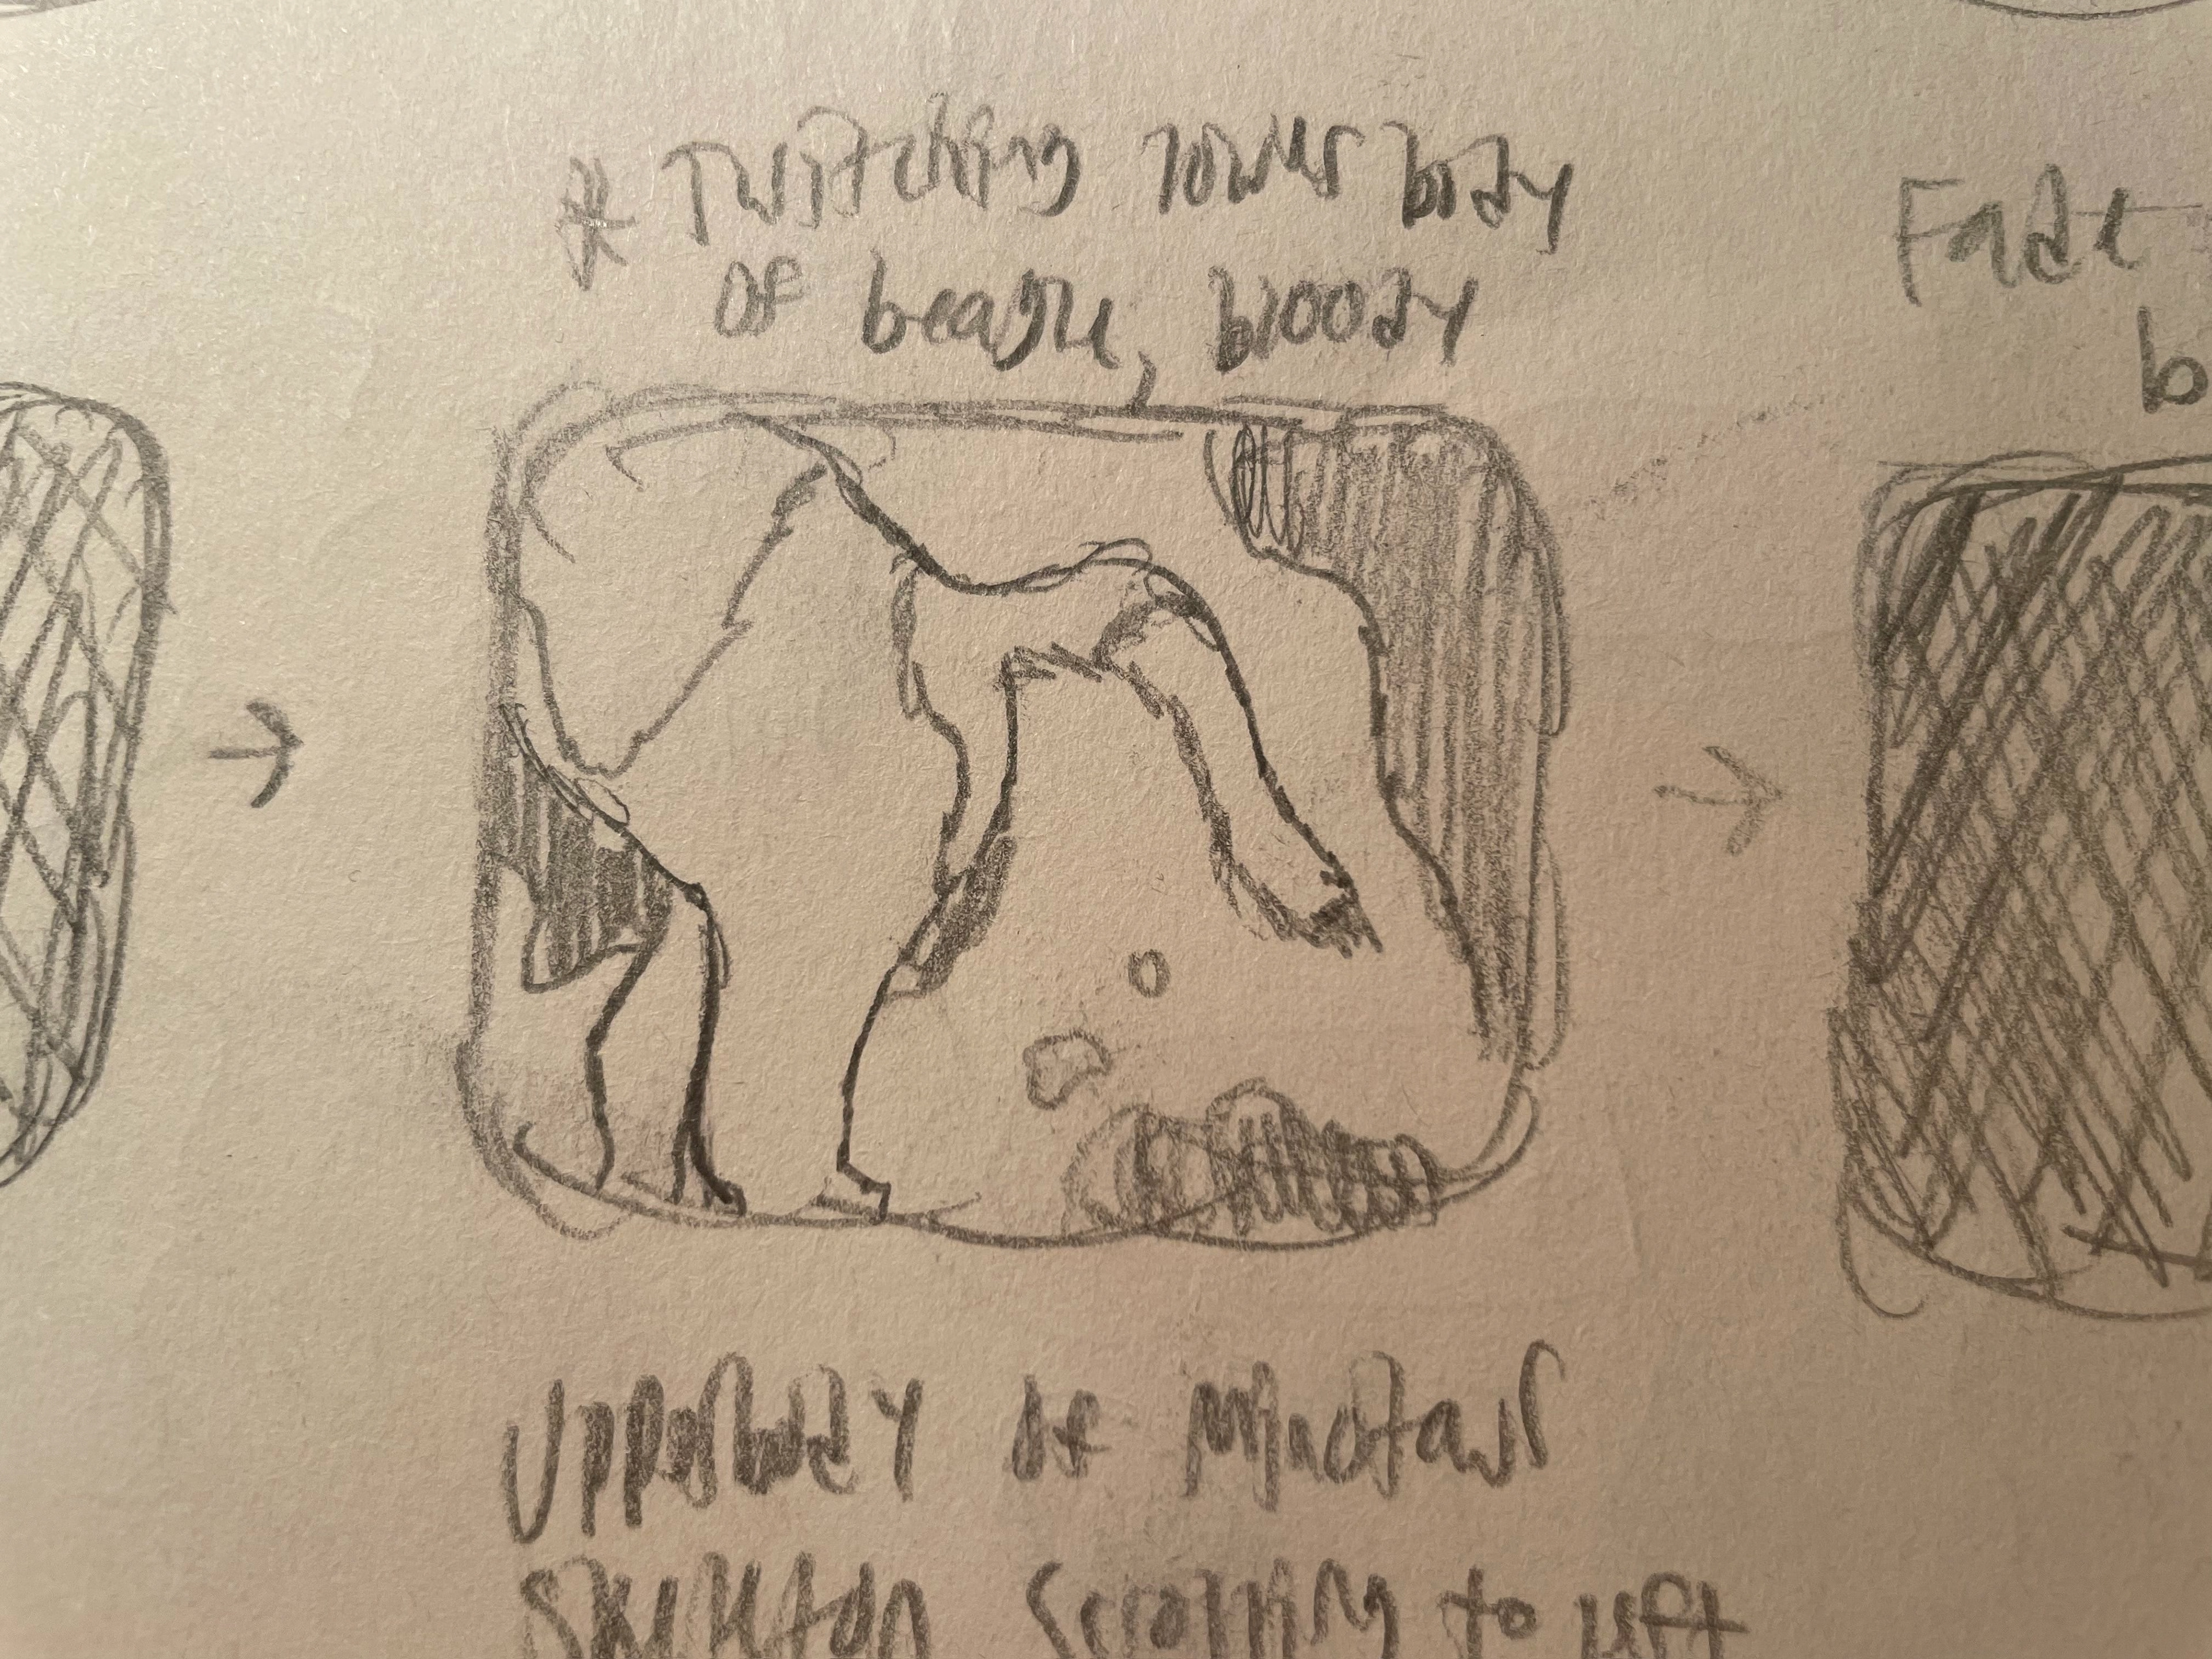 * Twitching lower body
of beagle, bloody
Fade
b
Upperbody of Minotaur
Skeleton scrolling to left